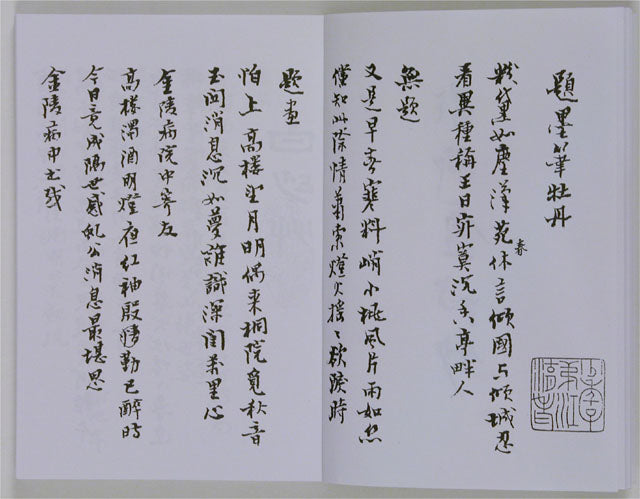 題墨筆牡丹
粉黛如塵漢苑春休言傾國与傾城忍
看異種稱王日寂寞沉香亭畔人
無題
又是早春寒料峭小桃風片雨如絲
僅知此際情蕭索燈火搖〻欲時
題畫
怕上高樓望月明偶來桐院覓秋音
玉關消息沉如夢誰識深閨萬里心
金陵病院中寄友
高樓濁酒明燈夜紅袖殷勤已醉時
今日竟成隔世感公消息最堪思
金陵病中